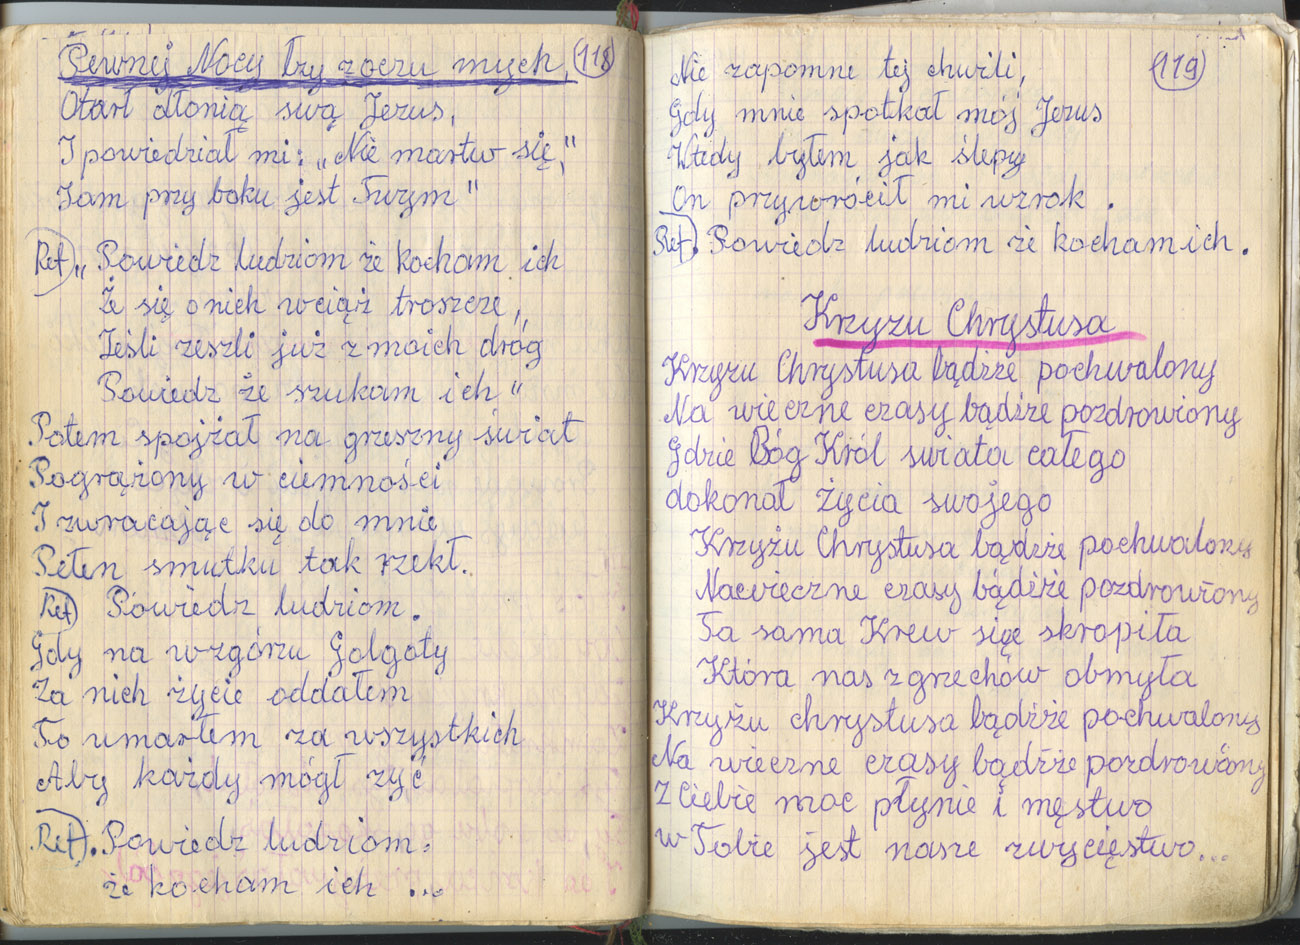 Pewnej Nocy łzy z oczu mych, 118
Otarł dłonią swą Jezus,
I powiedział mi: „Nie martw się,"
Jam przy boku jest Twym"
Ref. „Powiedz ludziom że kocham ich
Że się o nich wciąż troszcze,
Jeśli zeszli już z moich dróg
Powiedz że szukam ich"
Potem spojżał na grzeszny świat
Pogrążony w ciemności
I zwracając się do mnie
Pełen smutku tak rzekł.
Ref Powiedz ludziom.
Gdy na wzgórzu Golgoty
Za nich życie oddałem
To umarłem za wszystkich
Aby każdy mógł żyć
Ref. Powiedz ludziom.
że kocham ich ...
119
Nie zapomne tej chwili,
Gdy mnie spotkał mój Jezus
Wtedy byłem jak ślepy
On przywrócił mi wzrok.
Ref. Powiedz ludziom że kocham ich.
Krzyżu Chrystusa
Krzyżu Chrystusa bądźże pochwalony
Na wieczne czasy bądźże pozdrowiony
Gdzie Bóg Król swiata całego
dokonał życia swojego
Krzyżu Chrystusa bądźże pochwalony
Na wieczne czasy bądźże pozdrowiony
Ta sama Krew cię skropiła
Która nas z grzechów obmyła
Krzyżu chrystusa bądźże pochwalony
Na wieczne czasy bądźże pozdrowiony
z Ciebie moc płynie i męstwo
w Tobie jest nasze zwycięstwo...